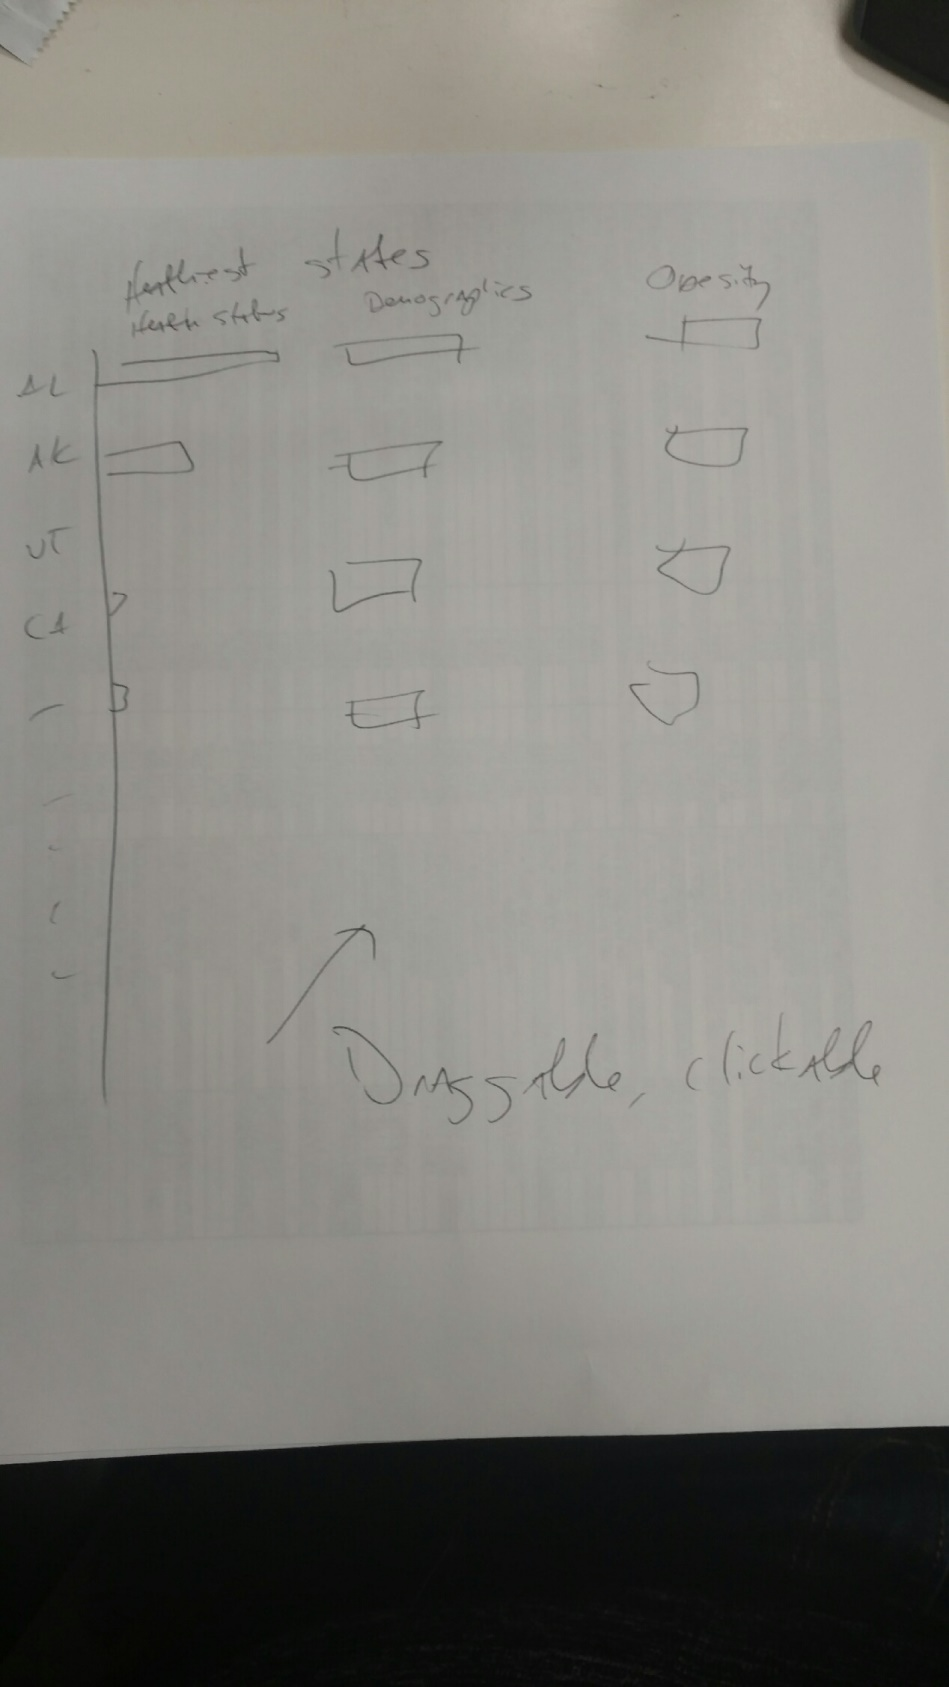 Healthiest states
Health status Demographics Obesity
AL
AK
UT
CA
Draggable, clickable